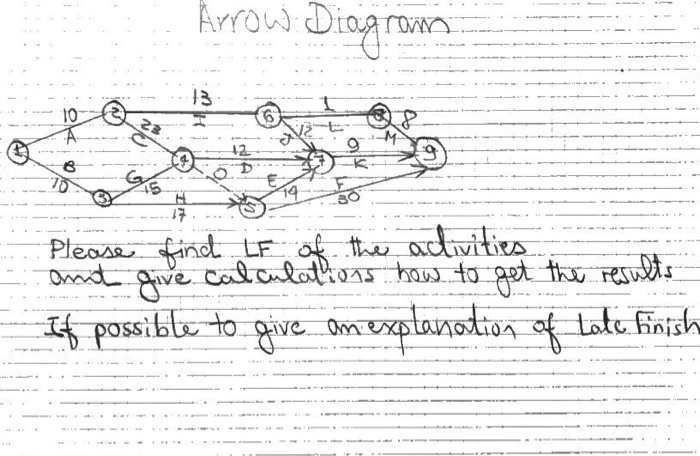 Arrow Diagram
13
1
10
2
I
6
L
8
8
A
23
C
12
J
M
1
12
D
7
9
K
9
B
10
G
15
4
0
E
14
F
30
3
H
17
5
Please find LF of the activities
and give calculations how to get the results
If possible to give an explanation of Late Finish